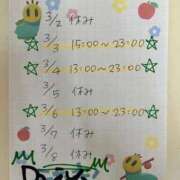 3/2 休み
3/3 15:00~23:00
3/4 13:00~23:00
3/5 休み
3/6 13:00~23:00
3/7 休み
3/8 休み